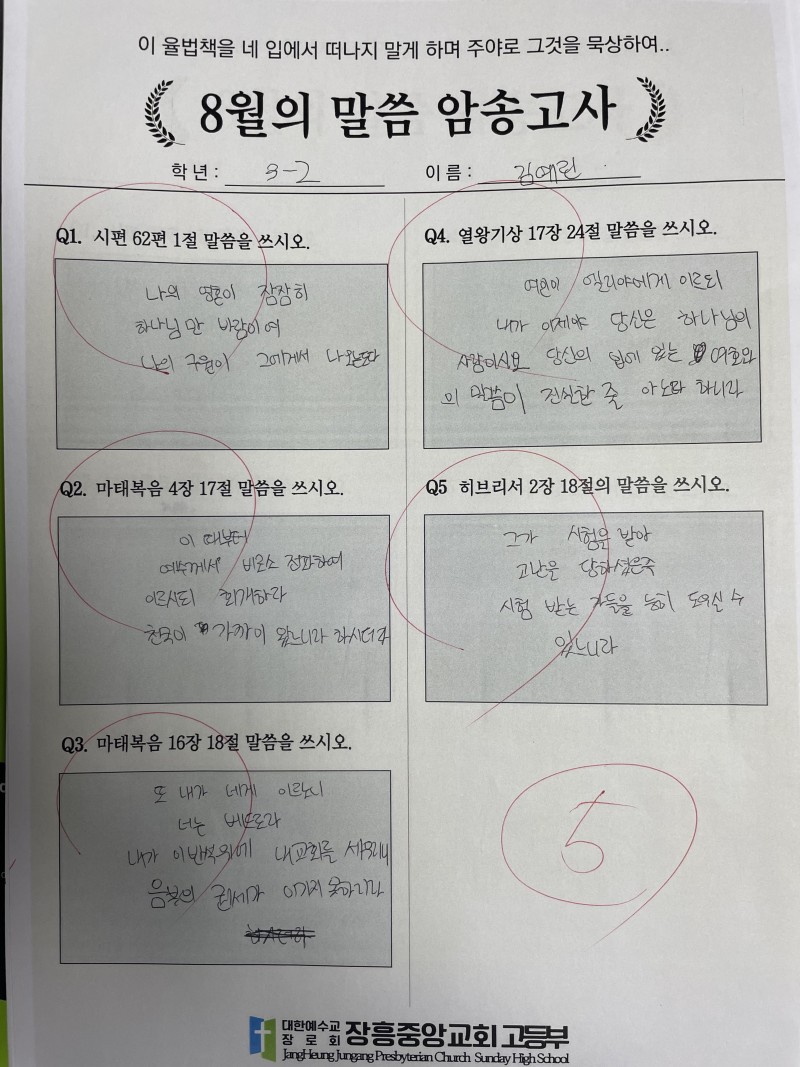 이 율법책을 네 입에서 떠나지 말게 하며 주야로 그것을 묵상하여..
8월의 말씀 암송고사
학년 : 3-2
이름 : 김예린
Q1. 시편 62편 1절 말씀을 쓰시오.
나의 영혼이 잠잠히
하나님만 바람이여
나의 구원이 그에게서 나오는도다
Q2. 마태복음 4장 17절 말씀을 쓰시오.
이 때부터
예수께서 비로소 전파하여
이르시되 회개하라
천국이 가까이 왔느니라 하시더라
Q3. 마태복음 16장 18절 말씀을 쓰시오.
또 내가 네게 이르노니
너는 베드로라
내가 이 반석 위에 내 교회를 세우리니
음부의 권세가 이기지 못하리라
Q4. 열왕기상 17장 24절 말씀을 쓰시오.
여인이 엘리야에게 이르되
내가 이제야 당신은 하나님의
사람이시요 당신의 입에 있는 여호와
의 말씀이 진실한 줄 아노라 하니라
Q5 히브리서 2장 18절의 말씀을 쓰시오.
그가 시험을 받아
고난을 당하셨은즉
시험 받는 자들을 능히 도우실 수
있느니라
5
대한예수교
장로회
장흥중앙교회 고등부
JangHeung Jungang Presbyterian Church Sunday High School